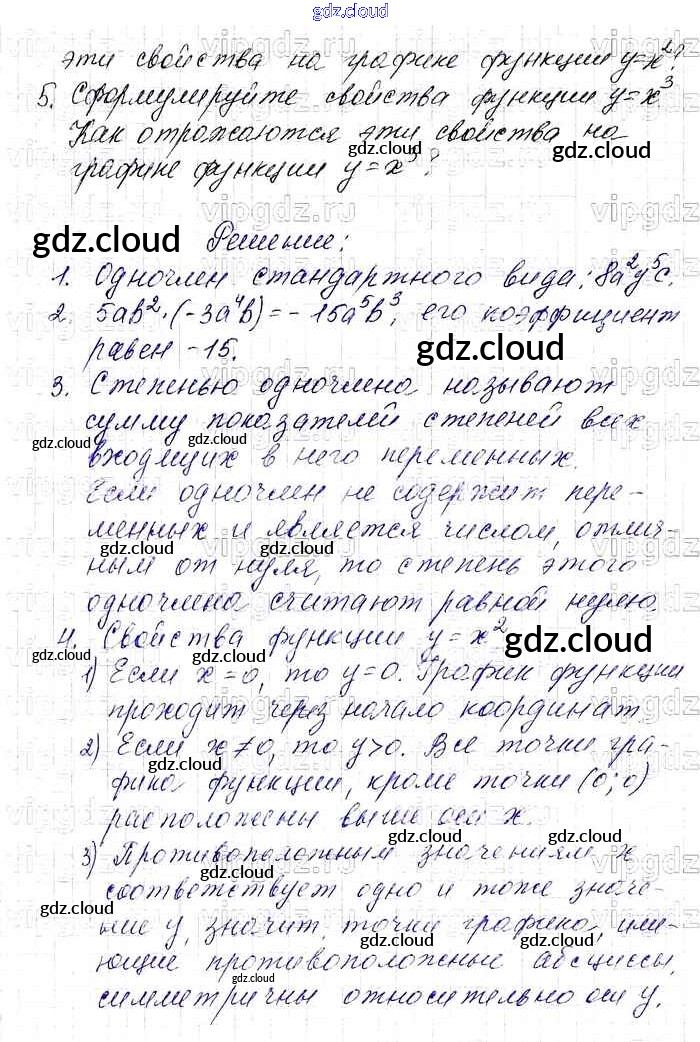 gdz.cloud
эти свойства на графике функции y=x²?
5. Сформулируйте свойства функции y=x³
Как отражаются эти свойства на
gdz.cloud
графике функции y=x³?
vipgdz.ru
gdz.cloud Решение:
1. Одночлен стандартного вида: 8a²y⁵c.
2. 5ab²·(-3a⁴b)=-15a⁵b³, его коэффициент
равен -15. gdz.cloud
3. Степенью одночлена называют
сумму показателей степеней всех
gdz.cloud gdz.cloud
входящих в него переменных. gdz.cloud
Если одночлен не содержит пере-
менных и является числом, отлич-
gdz.cloud gdz.cloud
ным от нуля, то степень этого
одночлена считают равной нулю.
4. Свойства функции y=x² gdz.cloud
gdz.cloud gdz.cloud
1) Если x=0, то y=0. График функции
проходит через начало координат.
2) Если x≠0, то y>0. Все точки гра-
gdz.cloud
фика функции, кроме точки (0;0)
расположены выше оси x.
gdz.cloud gdz.cloud
3) Противоположным значениям x
соответствует одно и тоже значе-
gdz.cloud
ние y, значит, точки графика, име-
gdz.cloud gdz.cloud
ющие противоположные абсциссы,
gdz.cloud
симметричны относительно оси y.